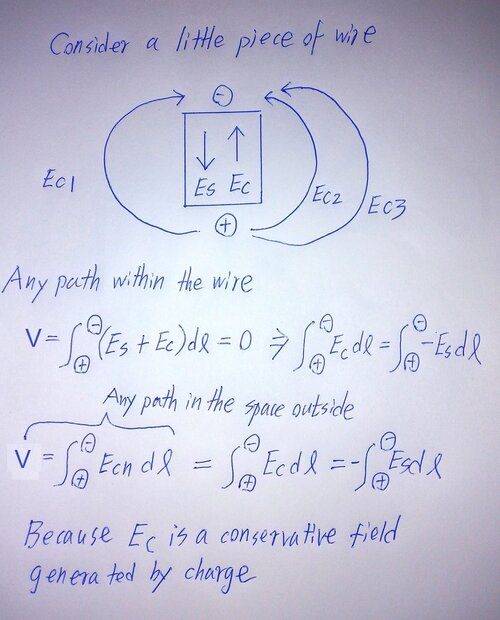 Consider a little piece of wire
⊖
Ec1
Es Ec
Ec2
Ec3
⊕
Any path within the wire
V = ∫⊕⊖ (Es + Ec)dl = 0 ⇒ ∫⊕⊖ Ec dl = ∫⊕⊖ -Es dl
Any path in the space outside
V = ∫⊕⊖ Ecn dl = ∫⊕⊖ Ec dl = -∫⊕⊖ Es dl
Because Ec is a conservative field
generated by charge